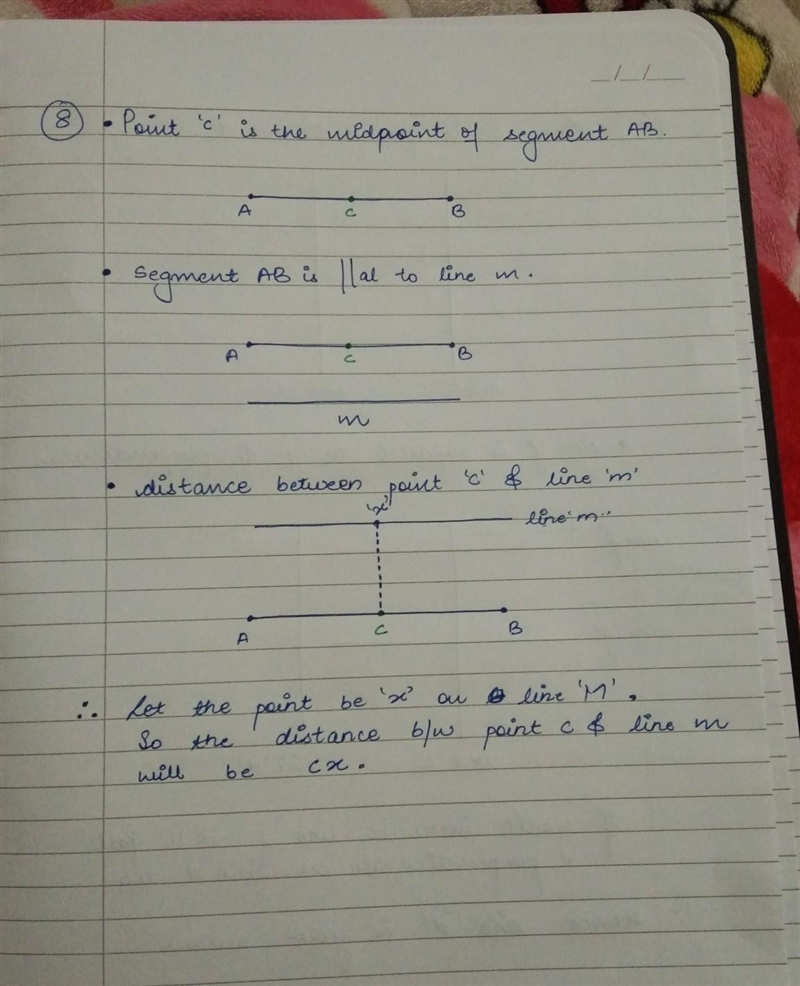 _/_/_
8 • Point 'c' is the midpoint of segment AB.
A C B
• Segment AB is ||al to line m.
A C B
m
• distance between point 'c' & line 'm'
'x'
line 'm'
A C B
∴ Let the point be 'x' on line 'M'.
So the distance b/w point c & line m
will be cx.